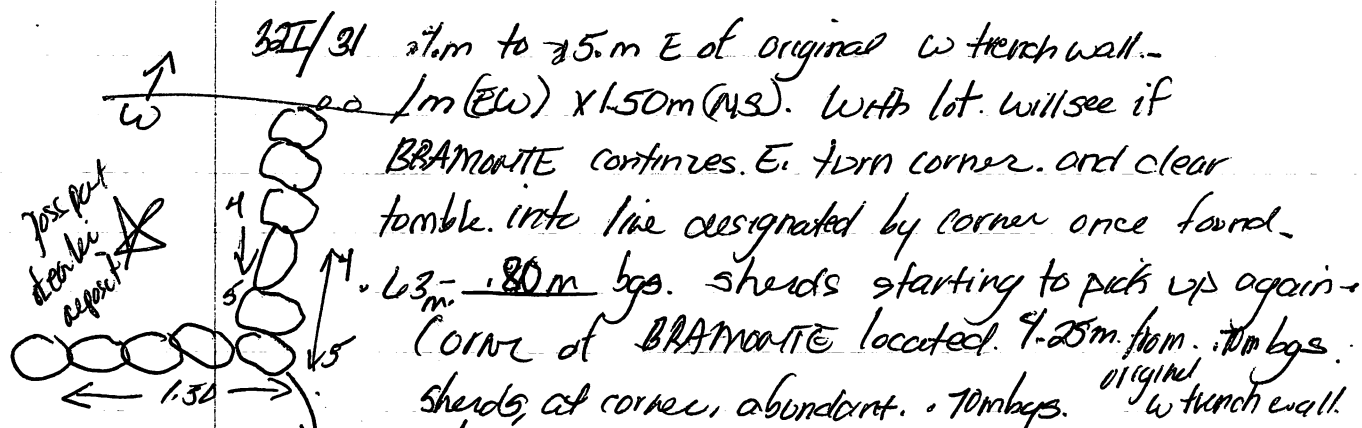 32II/31 4.m to 5.m E of original W trench wall.-
1m (EW) X 1.50m (NS). With lot. will see if
BRAMONTE continues. E. turn corner. and clear
tomble. into line designated by corner once found-
.63m.- .80m bgs. sherds starting to pick up again-
Corner of BRAMONTE located. 4.25m. from .70m bgs.
original
sherds, at corner, abundant. .70mbgs. W trench wall.
W
4
5
4
5
1.30
deposit